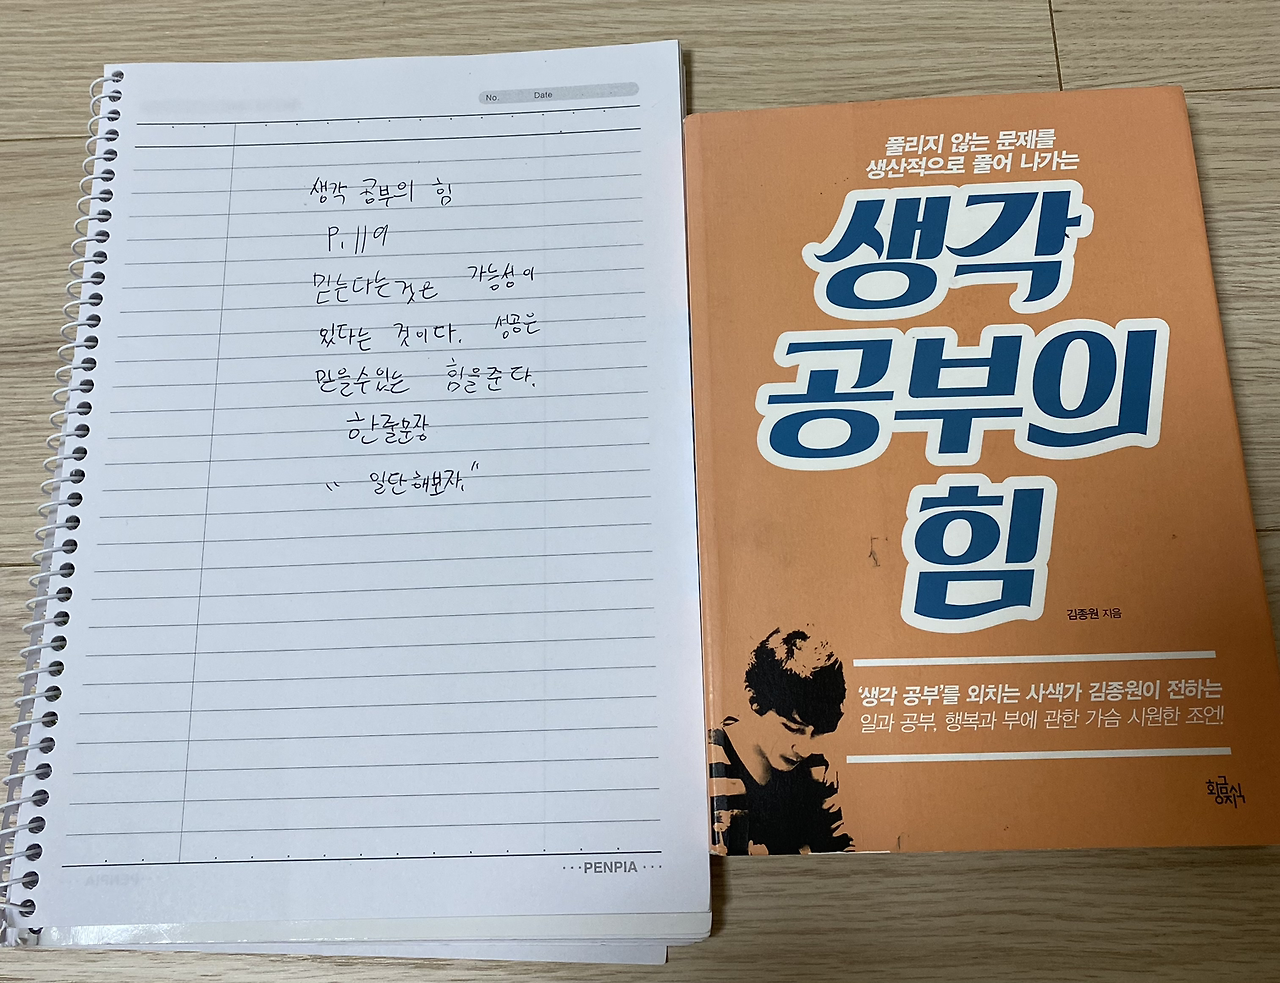 No. Date
생각 공부의 힘
P. 119
믿는다는것은 가능성이
있다는 것이다. 성공은
믿을수있는 힘을준다.
한줄문장
“ 일단해보자."
PENPIA
풀리지 않는 문제를
생산적으로 풀어 나가는
생각
공부의
힘
김종원 지음
'생각 공부'를 외치는 사색가 김종원이 전하는
일과 공부, 행복과 부에 관한 가슴 시원한 조언!
황금지식